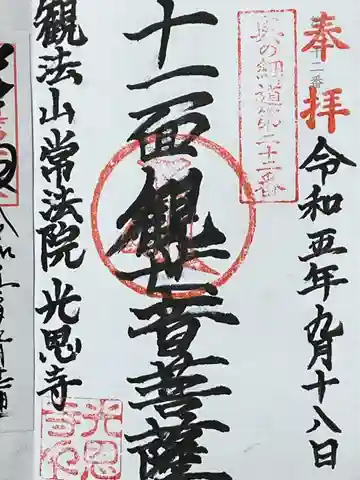 奉拝
十二番
令和五年九月十八日
奥の細道第二十二番
十一面観世音菩薩
観法山常法院光恩寺
光恩寺印